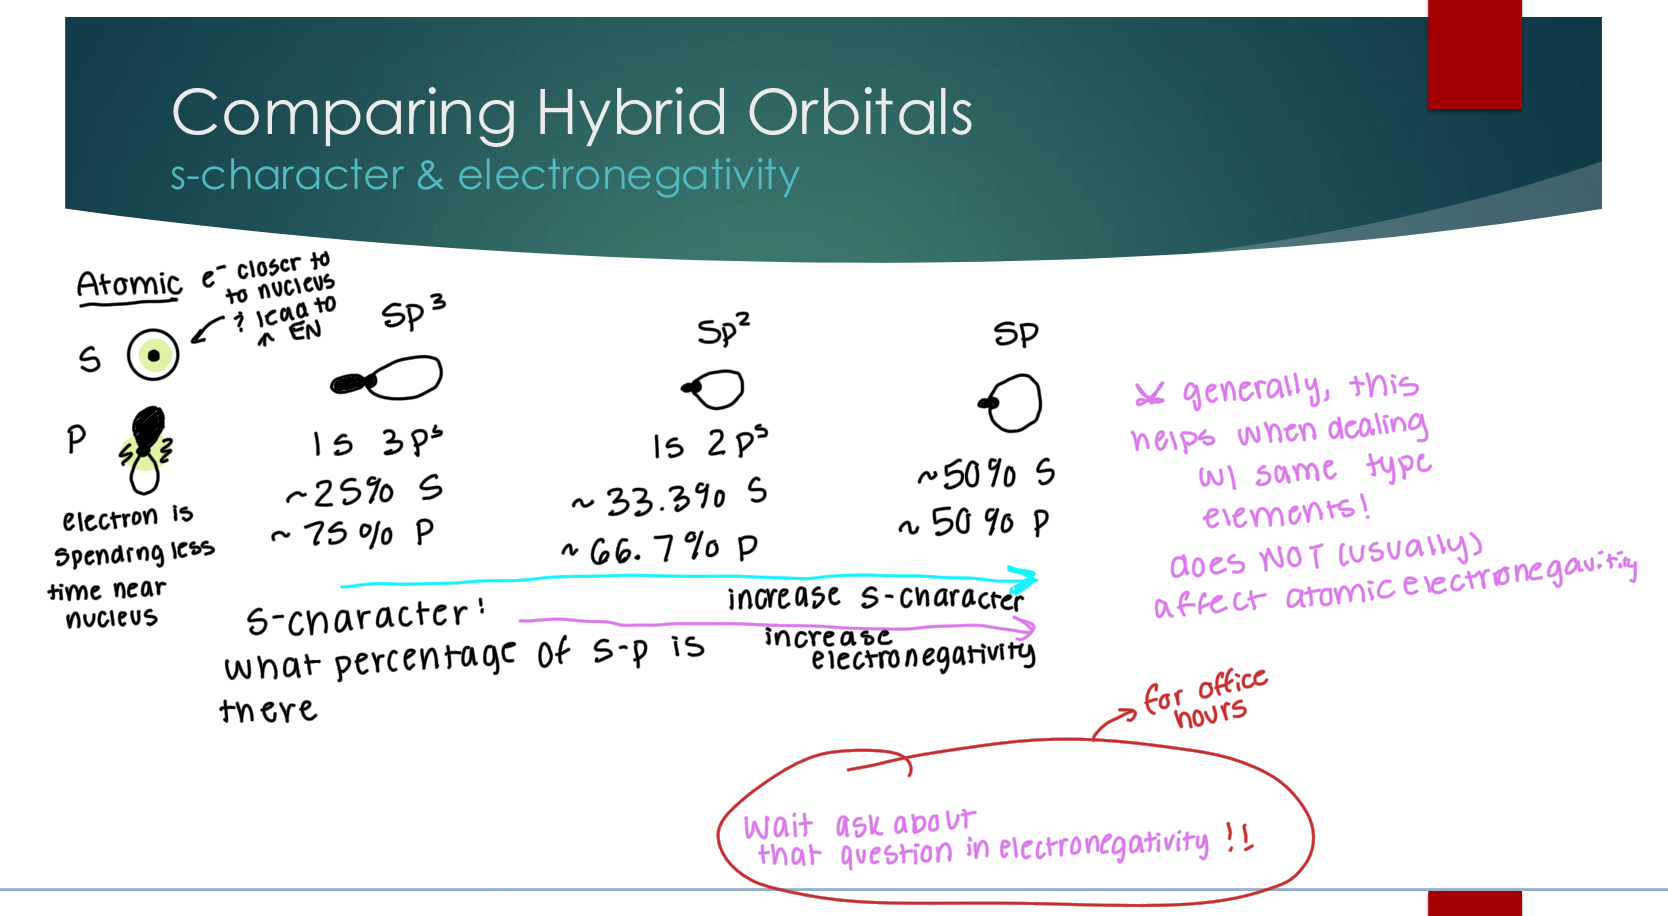 Comparing Hybrid Orbitals
s-character & electronegativity
Atomic
e⁻ closer to
to nucleus
? lead to
↑ EN
S
P
electron is
spending less
time near
nucleus
Sp³
1s 3pˢ
~25% S
~75% P
Sp²
1s 2pˢ
~33.3% S
~66.7% P
Sp
~50% S
~50% P
increase s-character
increase
electronegativity
S-character!
what percentage of s-p is
there
* generally, this
helps when dealing
w/ same type
elements!
does NOT (usually)
affect atomic electronegavitity
for office
hours
Wait ask about
that question in electronegativity !!